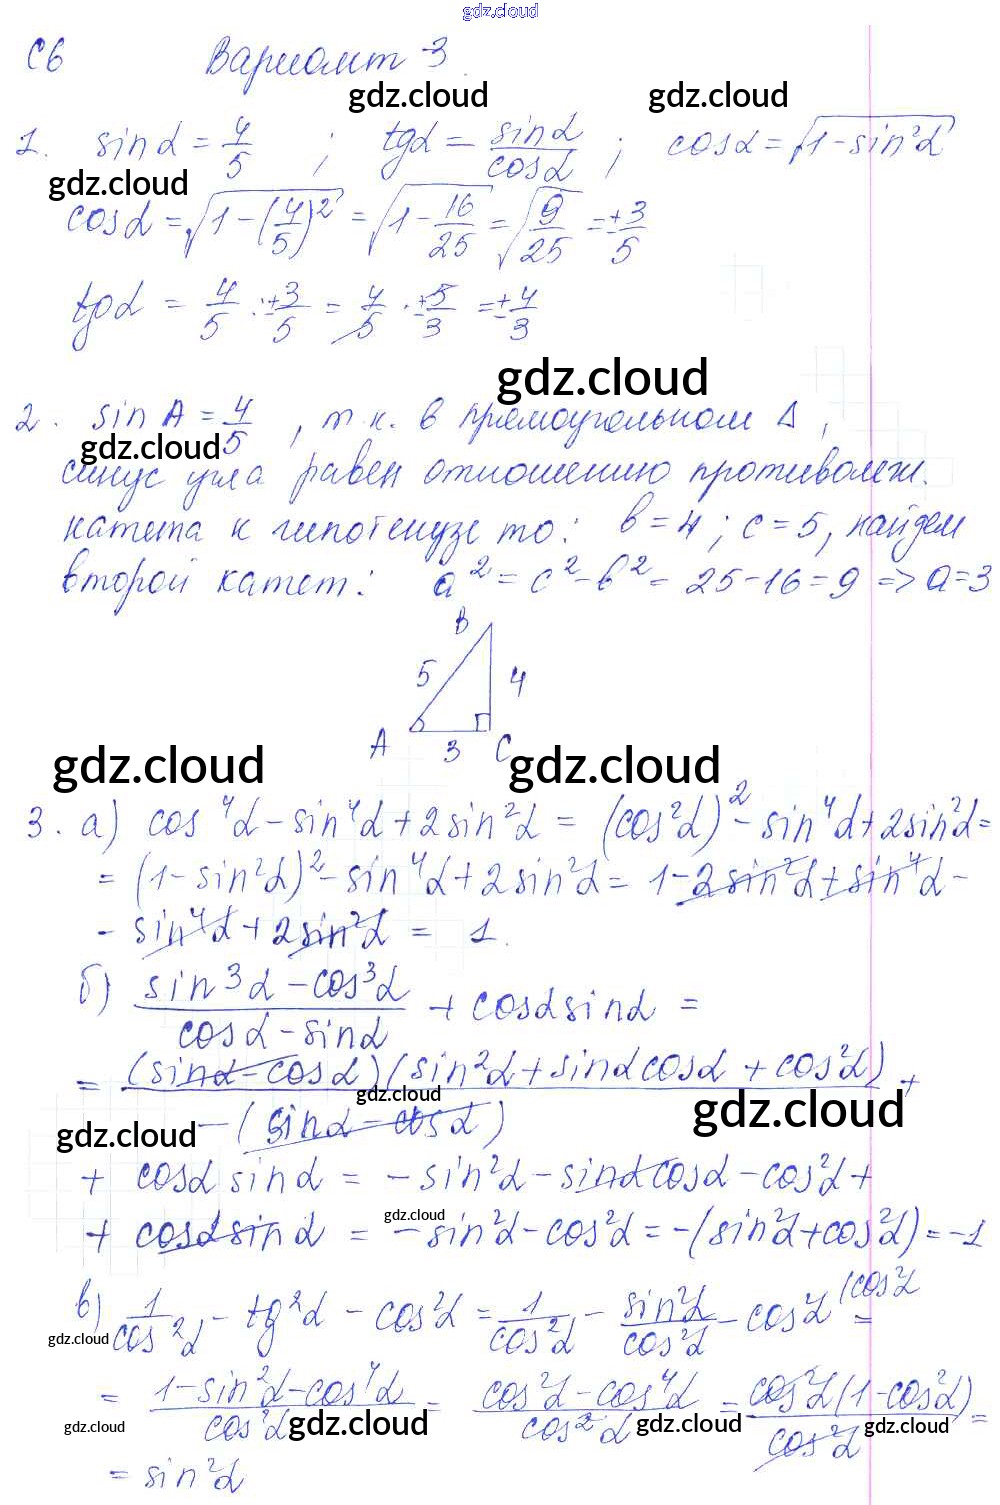 gdz.cloud
С6 Вариант 3
gdz.cloud gdz.cloud
1. sin α = 4/5 ; tg α = sin α / cos α ; cos α = √(1 - sin² α)
gdz.cloud
cos α = √(1 - (4/5)²) = √(1 - 16/25) = √(9/25) = ± 3/5
tg α = 4/5 : ± 3/5 = 4/5 · ± 5/3 = ± 4/3
gdz.cloud
2. sin A = 4/5 , т.к. в прямоугольном Δ,
gdz.cloud
синус угла равен отношению противолеж.
катета к гипотенузе то: в = 4; с = 5, найдем
второй катет: a² = c² - в² = 25 - 16 = 9 => a = 3
B
5 4
A 3 C
gdz.cloud gdz.cloud
3. а) cos⁴α - sin⁴α + 2sin²α = (cos²α)² - sin⁴α + 2sin²α =
= (1 - sin²α)² - sin⁴α + 2sin²α = 1 - 2sin²α + sin⁴α -
- sin⁴α + 2sin²α = 1.
б) (sin³α - cos³α) / (cos α - sin α) + cos α sin α =
= (sin α - cos α)(sin²α + sin α cos α + cos²α) / -(sin α - cos α) +
gdz.cloud gdz.cloud
gdz.cloud
+ cos α sin α = - sin²α - sin α cos α - cos²α +
gdz.cloud
+ cos α sin α = - sin²α - cos²α = -(sin²α + cos²α) = -1
в) 1/cos²α - tg²α - cos²α = 1/cos²α - sin²α/cos²α - cos²α (cos²α =
gdz.cloud
= (1 - sin²α - cos⁴α)/cos²α = (cos²α - cos⁴α)/cos²α = cos²α(1 - cos²α)/cos²α =
gdz.cloud gdz.cloud gdz.cloud gdz.cloud
= sin²α